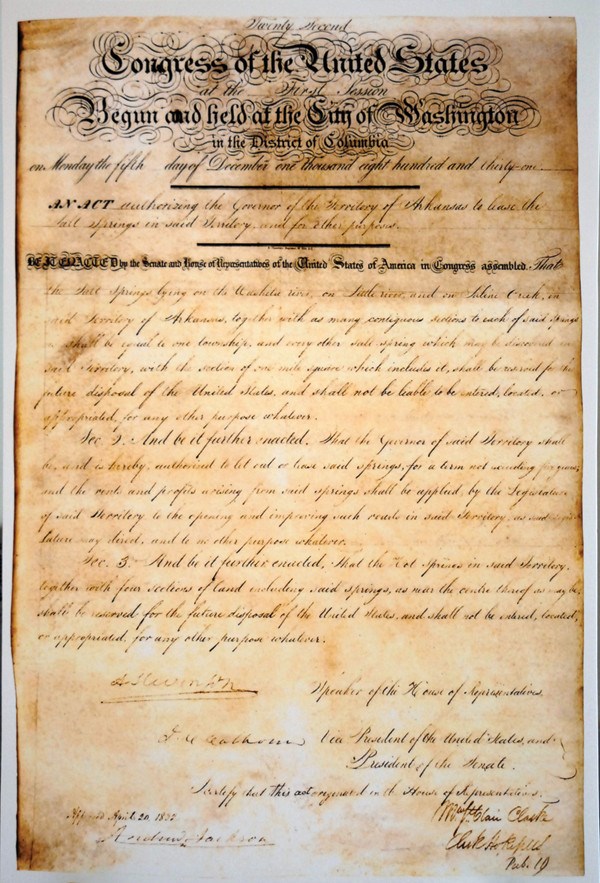 Twenty Second
Congress of the United States
at the First Session
Begun and held at the City of Washington
in the District of Columbia
on Monday the fifth day of December one thousand eight hundred and thirty-one.
AN ACT authorizing the Governor of the Territory of Arkansas to lease the
Salt springs in said Territory, and for other purposes.
BE IT ENACTED by the Senate and House of Representatives of the United States of America in Congress assembled. That
the Salt Springs lying on the Washita river, on Little river, and on Saline Creek, in
said Territory of Arkansas, together with as many contiguous sections to each of said Springs
shall be equal to one township, and every other salt spring which may be discovered in
said Territory, with the section of one mile square which includes it, shall be reserved for the
future disposal of the United States, and shall not be liable to be entered, located, or
appropriated, for any other purpose whatever.
Sec. 2. And be it further enacted, That the Governor of said Territory shall
be, and is hereby, authorized to let out or lease said springs, for a term not exceeding
and the rents and profits arising from said springs shall be applied, by the Legislature
of said Territory to the opening and improving such roads in said Territory, as said
lature may direct, and to no other purpose whatever.
Sec. 3. And be it further enacted, That the Hot Springs in said Territory,
together with four sections of land including said springs, as near the centre thereof as may be,
shall be reserved for the future disposal of the United States, and shall not be entered, located,
or appropriated, for any other purpose whatever.
A Stevenson Speaker of the House of Representatives.
J. C. Calhoun Vice President of the United States, and
President of the Senate.
I certify that this act originated in the House of Representatives.
Approved April 20, 1832 Clarke
Andrew Jackson Clerk Ho Reps
Pub. 19